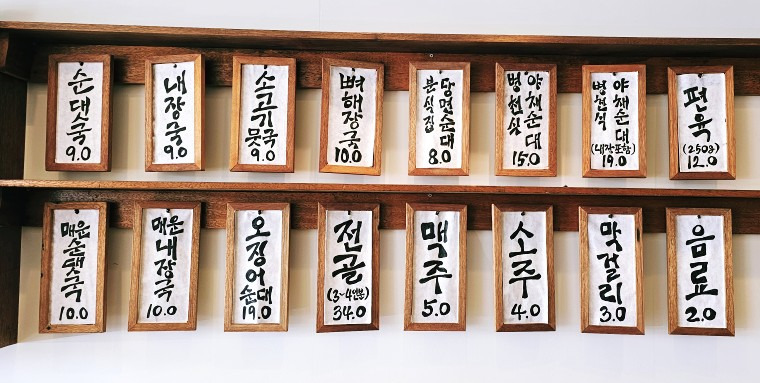 순댓국
9.0
내장국
9.0
소고기
뭇국
9.0
뼈해장국
10.0
분식집
당면순대
8.0
병천식
야채순대
15.0
병천식
야채순대
(내장포함)
19.0
편육
(250g)
12.0
매운
순댓국
10.0
매운
내장국
10.0
오징어
순대
19.0
전골
(3~4인분)
34.0
맥주
5.0
소주
4.0
막걸리
3.0
음료
2.0